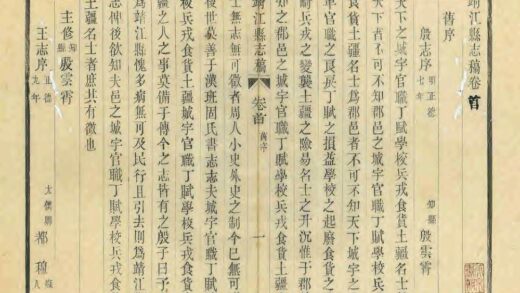 靖江縣志稿卷首
舊序
殷志序 明正德七年 知縣 殷雲霄
天下之城宇官職丁賦學校兵戎食貨土疆名士
天下者不可不知郡邑之城宇官職丁賦學校兵戎
食貨土疆名士為郡邑者不可不知天下城宇之
革官職之良民丁賦之損益學校之起廢食貨之
耗兵戎之變襲土疆之險易名士之升沉惟于郡
知之郡邑之城宇官職丁賦學校兵戎食貨土疆
靖江縣志稿 卷首 舊序 一
士無志無可徵者周人小史外史之制今已無可
後世莫善于漢班固氏書志志夫城宇官職丁賦
學校兵戎食貨土疆城宇官職丁賦學校兵戎食
疆之人之事莫備于傳今之志皆有之殷子曰予
為靖江縣愧多病無可及民行且引去則為靖江
志俾後欲知夫邑之城宇官職丁賦學校兵戎食
土疆名士者庶其有徵也
主修 知縣 殷雲霄
王志序 正德九年 太僕 都穆